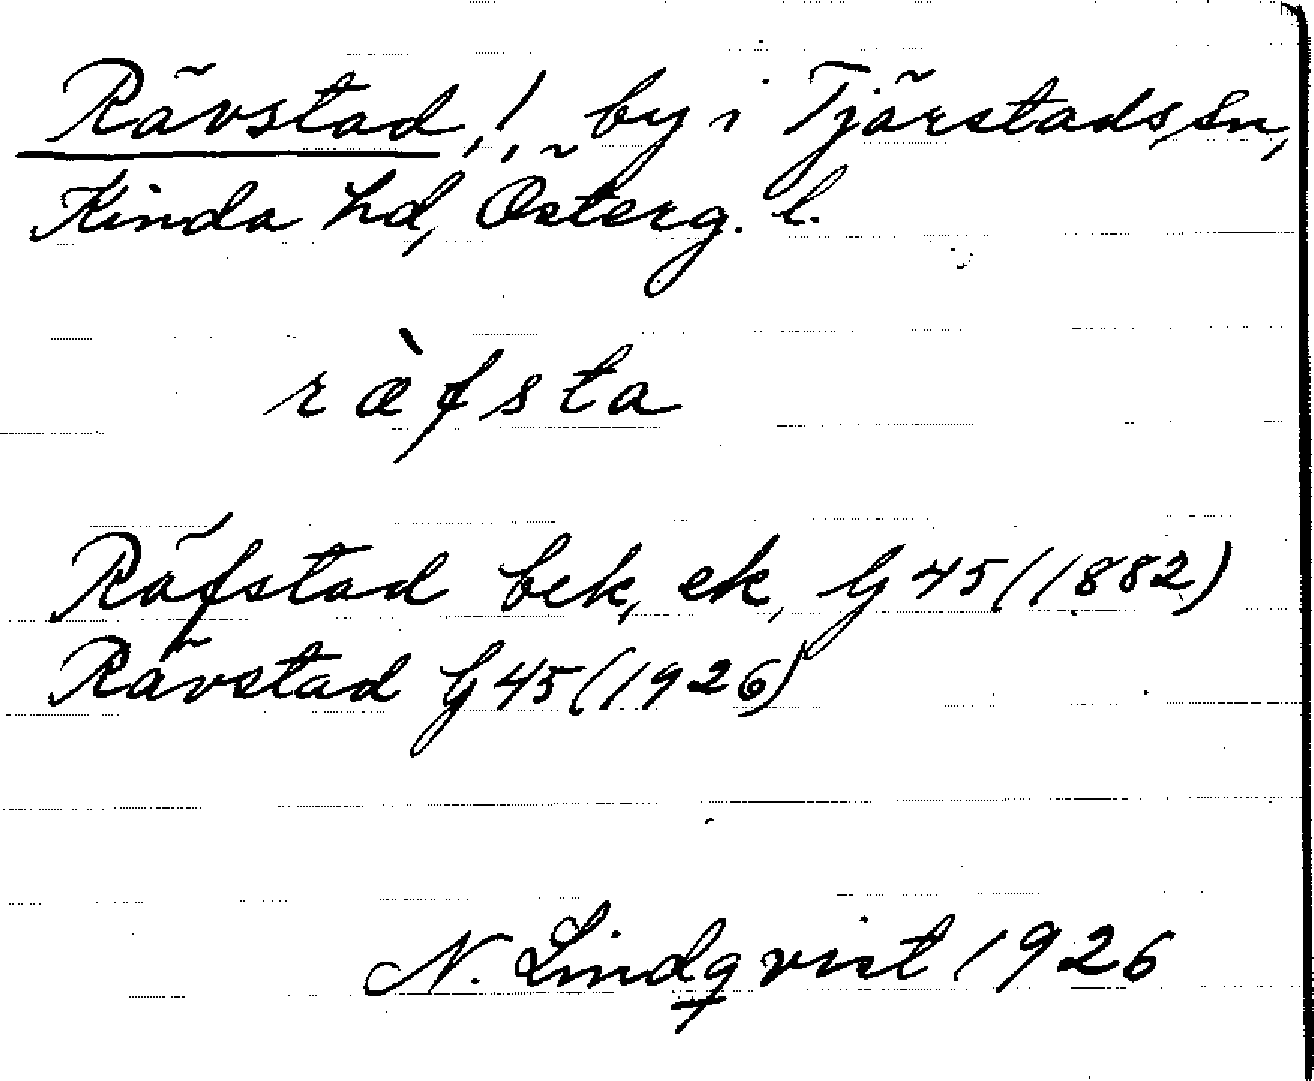 Rävstad, ! by i Tjärstads sn,
Kinda hd, Österg. l.
ræ̀fsta
Räfstad bek, ek, G 45 (1882)
Rävstad G 45 (1926)
N. Lindqvist 1926